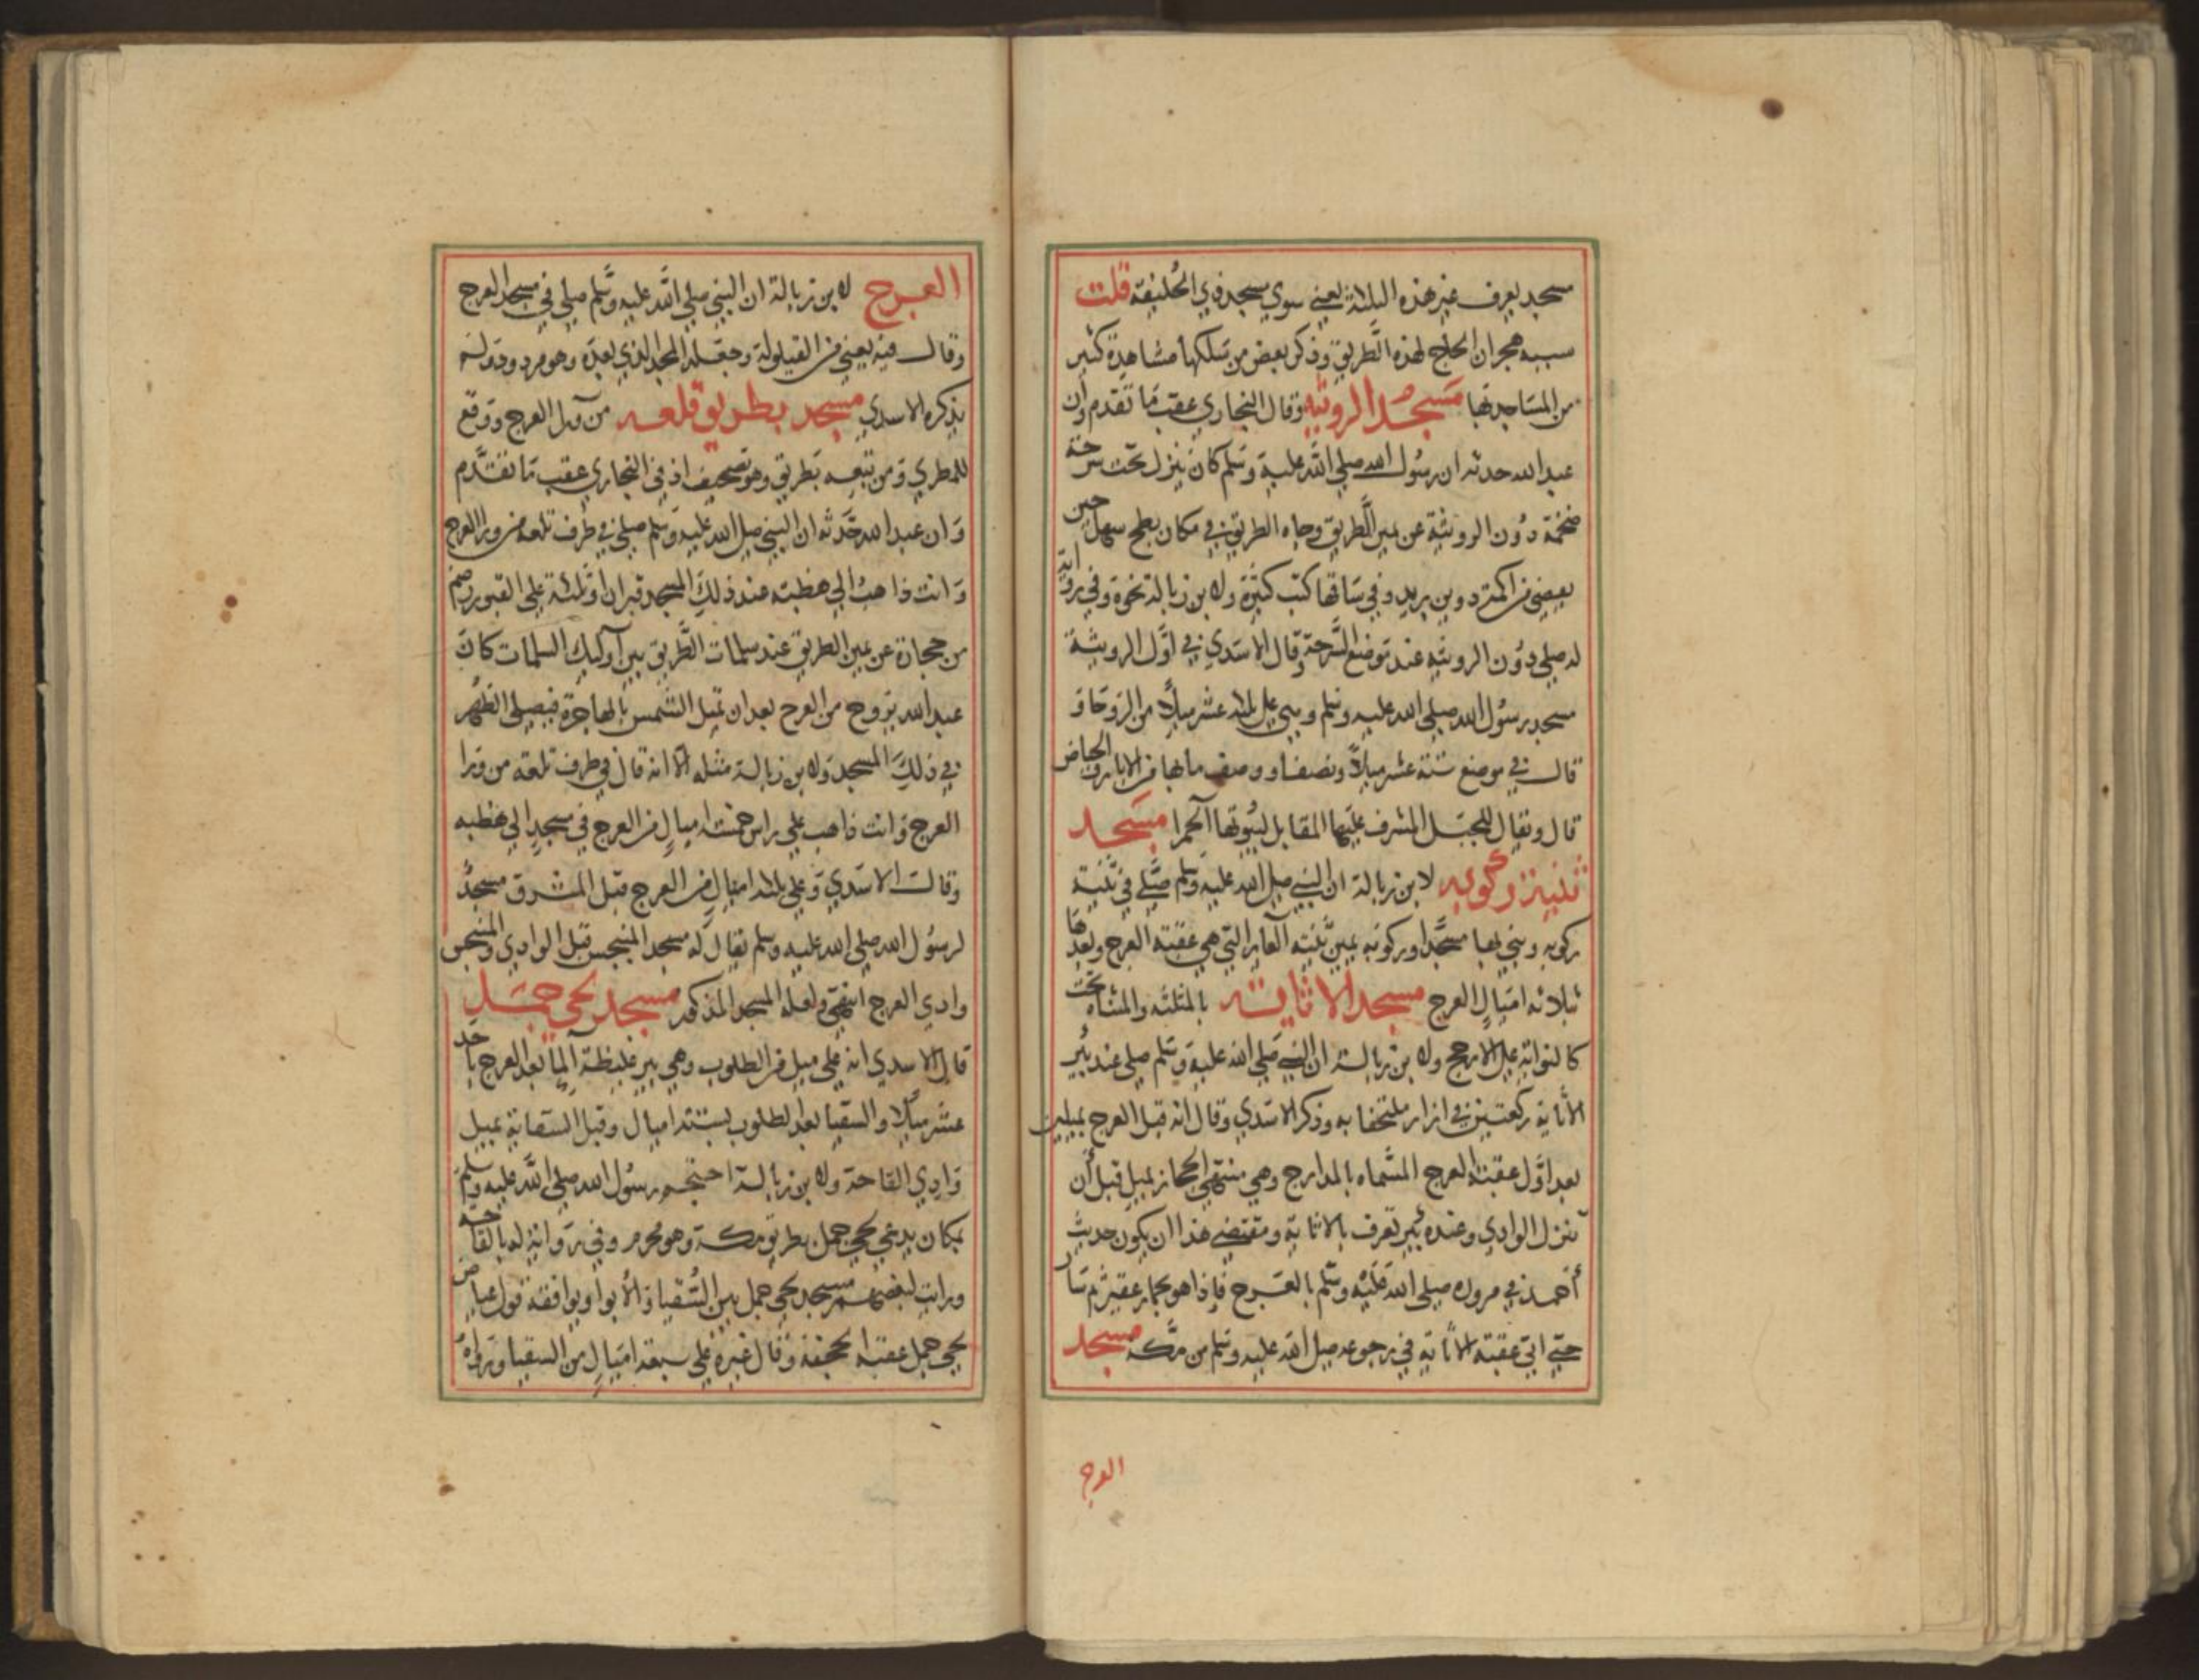 مسجد يعرف غير هذه الثلاثة يعني سوي مسجد ذي الحليفة قلت
سببه هجران الحاج لهذه الطريق وذكر بعض من سلكها مشاهدة كثير
من المساجد بها مسجد الرويثة وقال البخاري عقب ما تقدم وان
عبد الله حدثه ان رسول الله صلي الله عليه وسلم كان ينزل تحت سرحة
ضخمة دون الرويثة عن يمين الطريق وجاه الطريق في مكان بطح سهل حين
يفضي من اكمة دوين بريد وفي ساقها كتب كثيرة ولابن زبالة نحوه وفي رواية
له صلي دون الرويثه عند موضع السرحة وقال الاسدي في اول الرويثة
مسجد رسول الله صلي الله عليه وسلم وهي علي ثلاثة عشر ميلا من الروحا و
قال في موضع ستة عشر ميلا ونصفا ووصف ما بها من الابار والحياض
قال ويقال للجبل المشرف عليها المقابل لبيوتها الحمرا مسجد
ثنية ركوبه لابن زبالة ان النبي صلي الله عليه وسلم صلي في ثنية
ركوبه وبني بها مسجدا وركوبه يمين ثنية العاير التي هي عقبة العرج وبعدها
ثلاثه اميال العرج مسجد الاثايه بالمثلثه والمثناه تحت
كالنوايه علي الارجح ولابن زبالة ان النبي صلي الله عليه وسلم صلي عند بير
الاثاية ركعتين في ازار ملتحفا به وذكر الاسدي وقال انه قبل العرج بميلين
بعد اول عقبة العرج المسماه بالمدارج وهي منتهي الحجاز بميل قبل ان
ينزل الوادي وعنده بير تعرف بالاثاية ومقتضي هذا ان يكون حديث
احمد في مروره صلي الله عليه وسلم بالعرج فاذا هو بحمار عقير ثم سار
حتي اتي عقبة الاثاية في رجوعه صلي الله عليه وسلم من مكه مسجد
العرج
العرج لابن زبالة ان النبي صلي الله عليه وسلم صلي في مسجد العرج
وقال فيه يعني من القيلولة وجعله المجد الذي بعده وهو مردود ولم
يذكره الاسدي مسجد بطريق تلعه من ورا العرج ووقع
للمطري ومن تبعه بطريق وهو تصحيف اذ في البخاري عقب ما تقدم
وان عبد الله حدثه ان النبي صلي الله عليه وسلم صلي في طرف تلعه من ورا العرج
وانت ذاهب الي هضبة عند ذلك المسجد قبران او ثلثة علي القبور رضم
من حجارة عن يمين الطريق عند سلمات الطريق بين اوليك السلمات كان
عبد الله يروح من العرج بعد ان تميل الشمس بالهاجرة فيصلي الظهر
في ذلك المسجد ولابن زبالة مثله الا انه قال في طرف تلعه من ورا
العرج وانت ذاهب علي راس خمسة اميال من العرج في مسجد الي هضبه
وقال الاسدي وعلي ثلاثة اميال من العرج قبل المشرق مسجد
لرسول الله صلي الله عليه وسلم يقال له مسجد المنبجس قبل الوادي والمنبجس
وادي العرج انتهي ولعله المسجد المذكور مسجد لحي جمل
قال الاسدي انه علي ميل من الطلوب وهي بير غليظة الما بعد العرج باحد
عشر ميلا والسقيا بعد الطلوب بستة اميال وقبل السقاية بميل
وادي القاحة ولابن زبالة احتجم رسول الله صلي الله عليه وسلم
بمكان يدعي لحي جمل بطريق مكة وهو محرم وفي رواية له بالقاحه
ورايت لبعضهم مسجد لحي جمل بين السقيا والابوا ويوافقه قول عياض
لحي جمل عقبة الجحفة وقال غيره علي سبعة اميال من السقيا ورواه